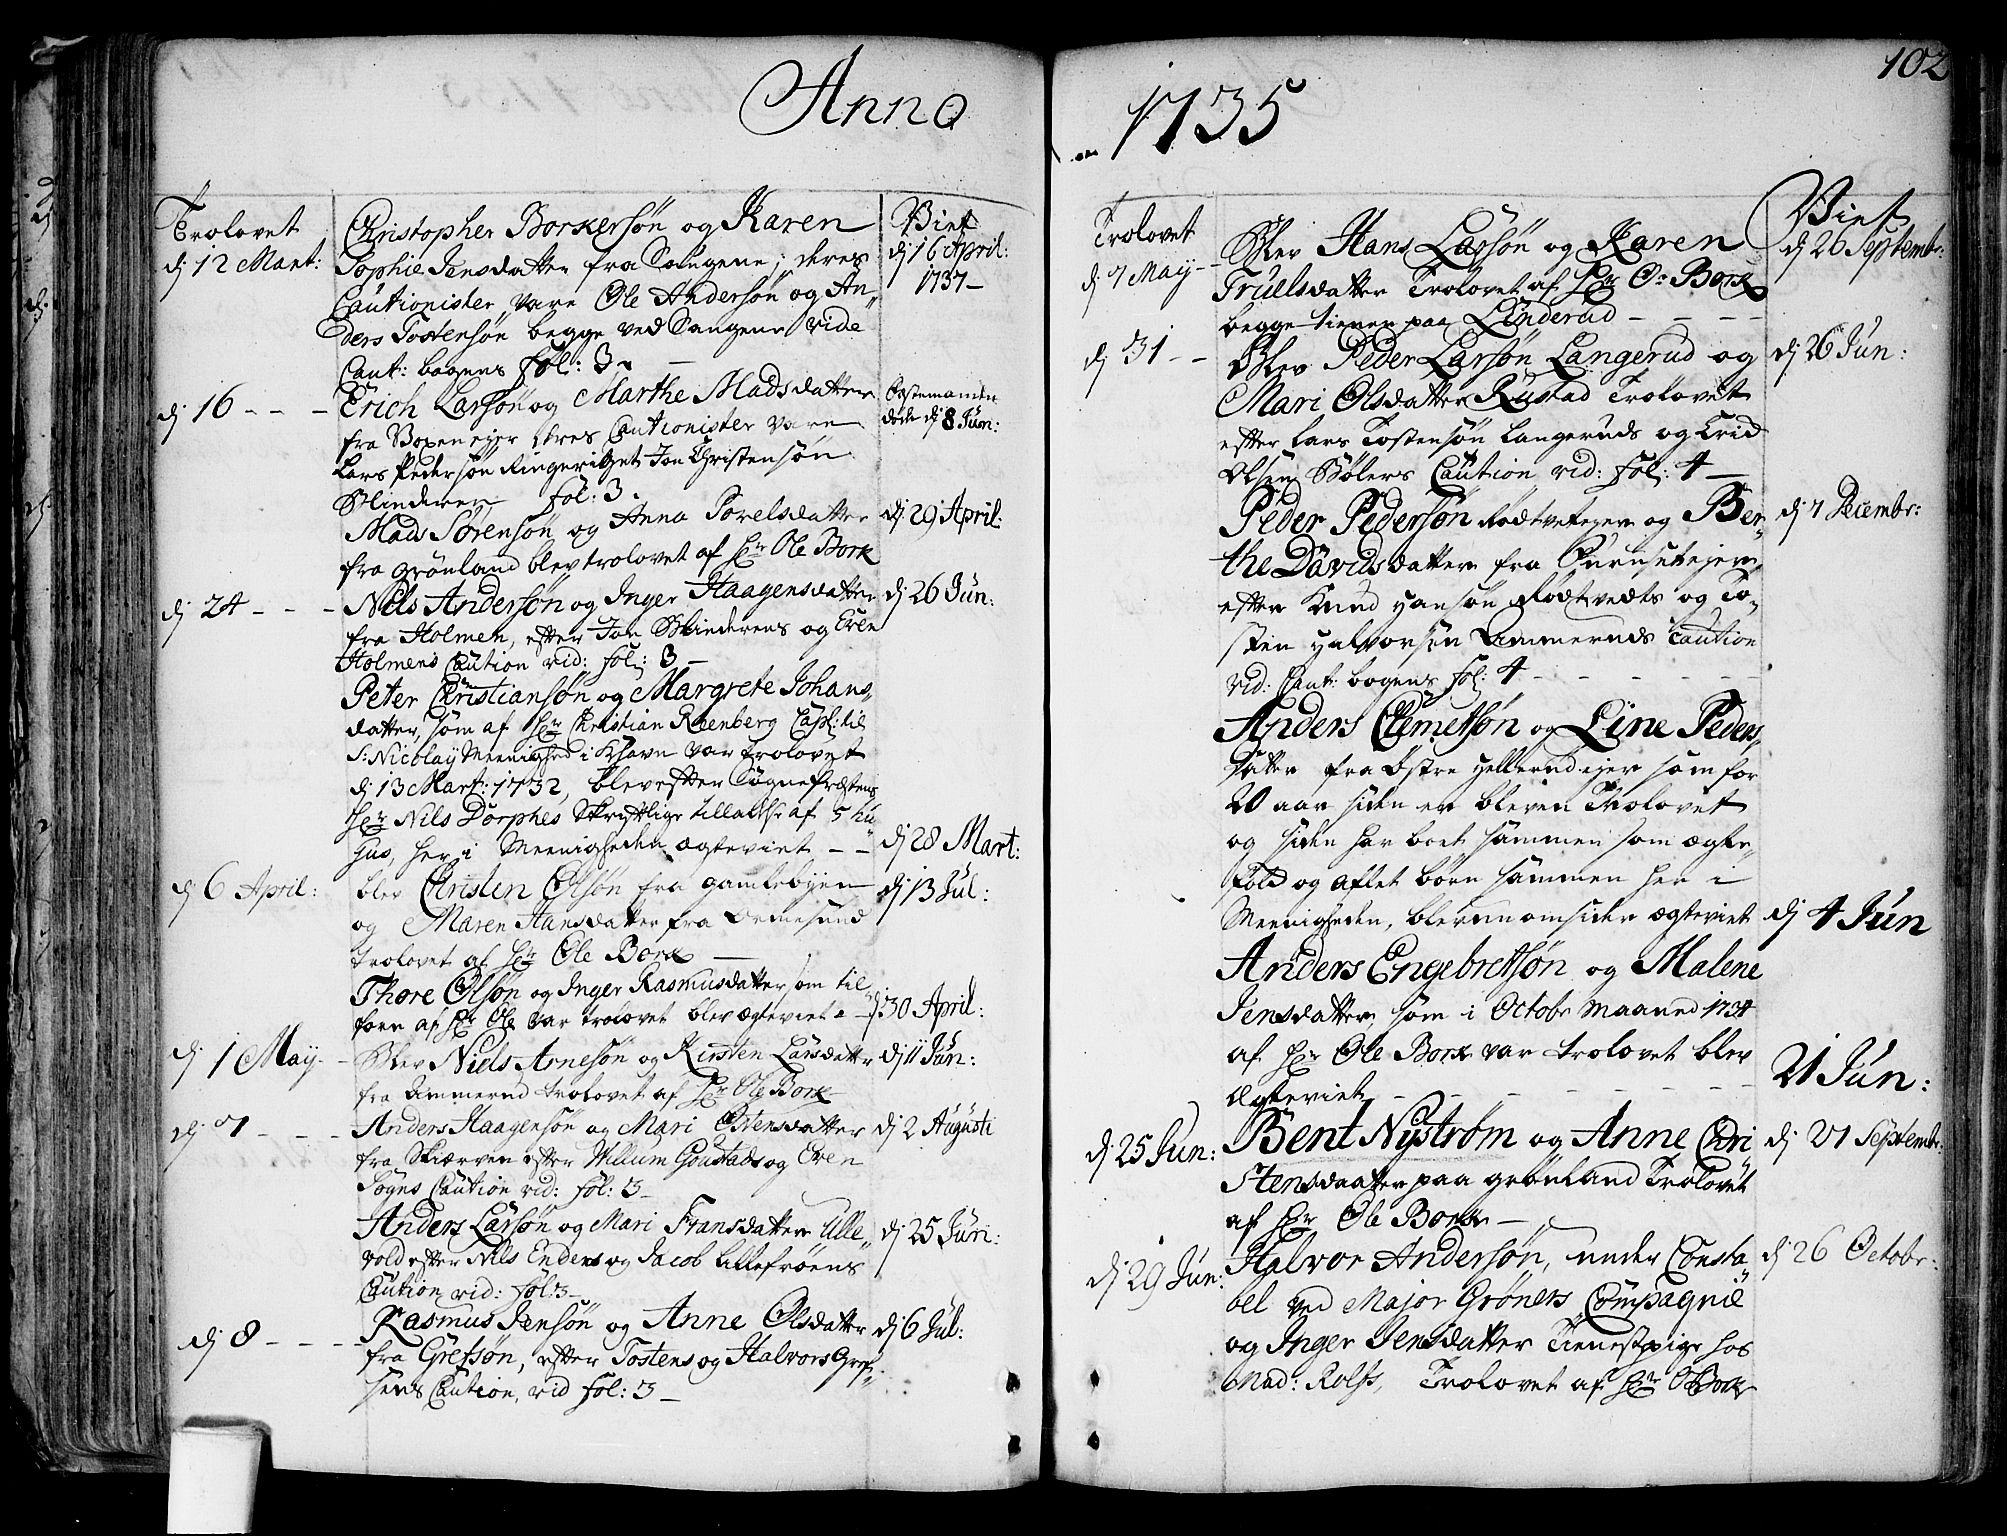 Anno
Trolovet
dj 12 Mart:
Christopher Borkersøn og Karen
Sophie Jensdatter fra Sougene; deres
Cautionister vare Ole Andersøn og An„
ders Tostensøn begge ved Sangene vide
Cant: bogens fol: 3.
Viet
dj 16 April:
1737 –
dj 16 - - -
Erich Larsøn og Marthe Madsdatter
fra Voxen ejer deres Cautionister vare
Lars Pedersøn Ringeriget Jon Christensøn
Blinderen fol: 3.
døde dj 8 Jun:
Mads Sørensøn og Anna Porelsdatter
fra Grønland blev trolovet af Hr: Ole Bork
dj 29 April:
dj 24 - - -
Nils Andersøn og Inger Haagensdatter
fra Holmen, efter Jon Blinderens og Even
Holmens Caution vid: fol: 3 –
dj 26 Jun:
Peter Christiansøn og Margrete Johans„
datter, som af Hr: Christian Reenberg Capl: til
S: Nicolaj Meenighed i Khavn var trolovet
dj 13 Mart: 1732, blev efter Sognepræstens
Hr: Nils Dorphes Skriftlige tilladelse af 5 hu
hus, her i Meenigheden ægteviet - -
dj 28 Mart:
dj 6 April:
blev Christen Olsøn fra gamlebyen
og Maren Hansdatter fra Ormesund
trolovet af Hr: Ole Bork –
dj 13 Jul:
Thore Olsøn og Inger Rasmusdatter som til
forn af Hr: Ole var trolovet blev ægteviet -
dj 30 April:
dj 1 May. -
Blev Niels Arnesøn og Kirsten Larsdatter
fra Ammerud trolovet af Hr: Ole Bork
dj 11 Jun:
dj 7 - - -
Anders Haagensøn og Mari Ostensdatter
fra Skiærven efter Willum Goustads og Even
Sogns Caution vid: fol: 3 –
dj 2 Augusti
Anders Larsøn og Mari Fransdatter Ulle„
vold efter Nils Enders og Jacob Lillefrøens
Caution vid: fol: 3 –
dj 25 Jun:
dj 8 - - - -
Rasmus Jensøn og Anne Olsdatter
fra Grefsøn, efter Tostens og Halvors Gref„
sens Caution, vid fol: 3 –
dj 6 Jul:
102
1735
Trolovet
dj 7 May - -
Blev Hans Larsøn og Karen
Truelsdatter Trolovet af Hr: O: Bork
begge tiener paa Linderud - - - -
Viet
dj 26 Septembr:
dj 31 - -
Blev Peder Larsøn Langerud og
Mari Olsdatter Rustad Trolovet
efter Lars Tostensøn Langeruds og Erid
Olsen Bølers Caution vid: fol: 4 –
dj 26 Jun:
Peder Pedersøn Rødtvetejer og Ber„
the Davidsdatter fra Furusetejer
efter Knud Hansøn Rødtvedts og To„
sten Halvorsen Ammeruds Caution
vid: Cant: bogens fol: 4 - - - - - -
dj 7 Decembr:
Anders Clemetsøn og Line Peders„
datter fra Østre Hellerud ejer som for
20 aar siden er bleven Trolovet
og siden har boet sammen som ægte„
Folk og aflet børn sammen her i
Meenigheden, bleve omsider ægteviet
dj 4 Jun
Anders Engebretsøn og Malene
Jensdatter, som i Octobr Maaned 1734
af Hr: Ole Bork var trolovet blev
Ægteviet - - - - - -
21 Jun:
dj 25 Jun:
Bent Nystrøm og Anne Chri
stensdaatter paa Grønland Trolovet
af Hr: Ole Bork –
dj 21 Septembr:
dj 29 Jun:
Halvor Andersøn, under Consta„
bel ved Major Grøners Compagnie
og Inger Jensdatter Tienestpige hos
Mad: Rolfs, Trolovet af Hr: O Bork
dj 26 Octobr: